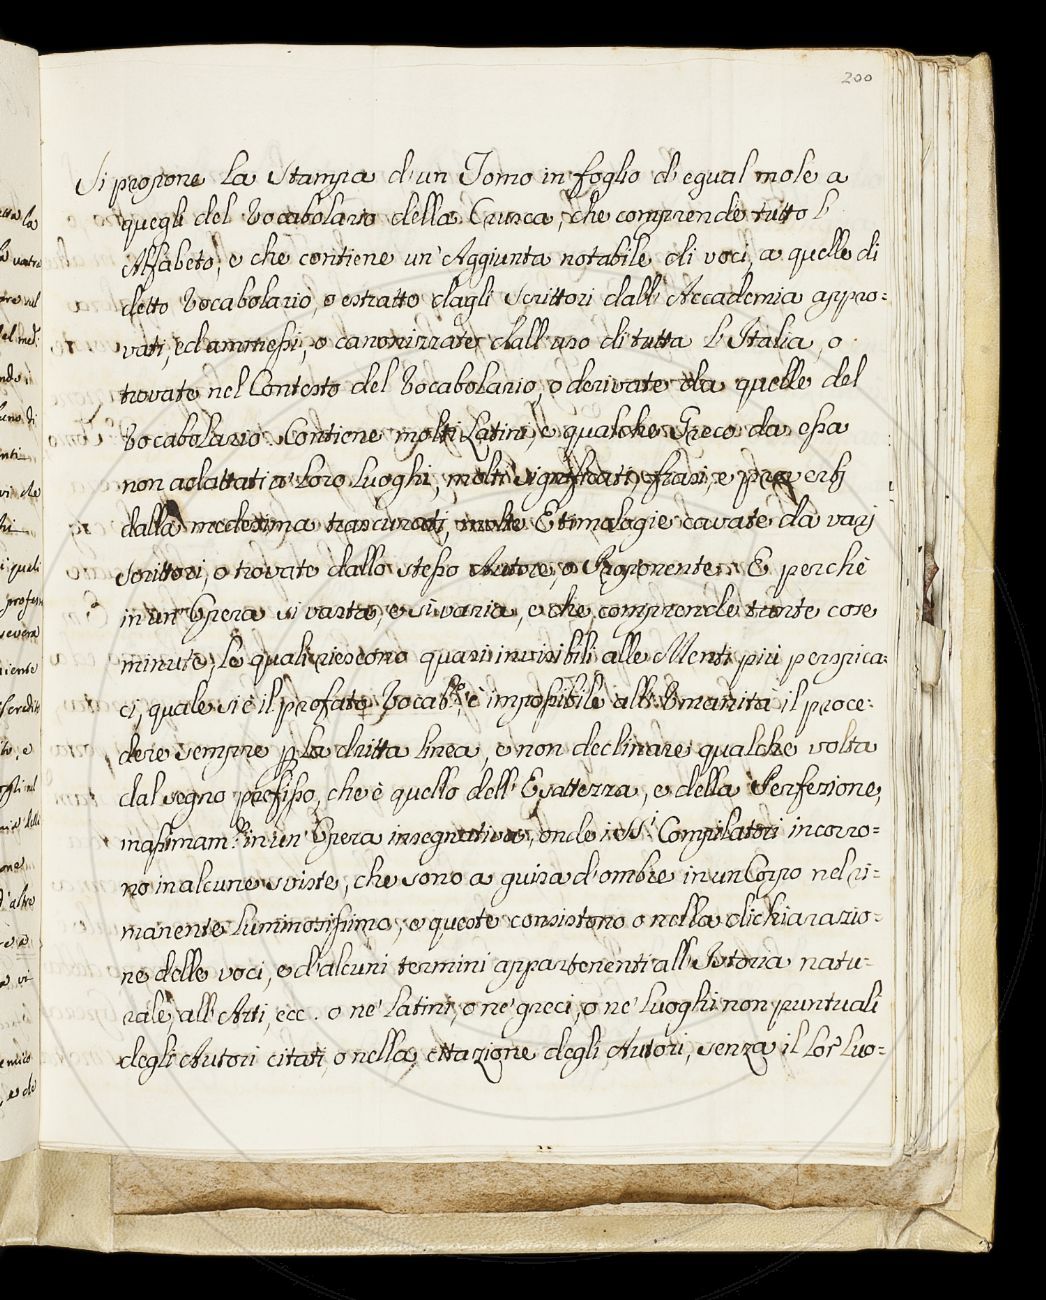 200
Si propone La Stampa d'un Tomo in foglio d'egual mole a
quegli del Vocabolario della Crusca, che comprende tutto l'
Alfabeto, e che contiene un'Aggiunta notabile di voci, a quelle di
detto Vocabolario, o estratto dagli Scrittori dall'Accademia appro=
vati, ed ammessi, o canonizzate dall'uso di tutta l'Italia, o
trovate nel Contesto del Vocabolario, o derivate da quelle del
Vocabolario. Contiene molti Latini, e qualche Greco da essa
non adattati a' Loro Luoghi, molti significati, frasi, e proverbj
dalla medesima trascurati, molte Etimologie cavate da varj
Scrittori, o trovate dallo stesso Autore, o Proponente. E perchè
in un'Opera sì vasta, e sì varia, e che comprende tante cose
minute, Le quali riescono quasi invisibili alle Menti più perspica=
ci, quale si è il prefato Vocab.º, è impossibile all'Umanità il proce=
dere sempre p La dritta linea, e non declinare qualche volta
dal segno prefisso, che è quello dell'Esattezza, e della Perfezione,
massimam.e in un'Opera insegnativa, onde i SS.i Compilatori incorro=
no in alcune sviste, che sono a guisa d'ombre in un Corpo nel ri=
manente Luminosissimo, e queste consistono o nella dichiarazio=
ne delle voci, e d'alcuni termini appartenenti all'Istoria natu=
rale, all'Arti, ecc. o ne' Latini, o ne' greci, o ne' Luoghi non puntuali
degli Autori citati, o nella citazione degli Autori, senza il Lor Luo=